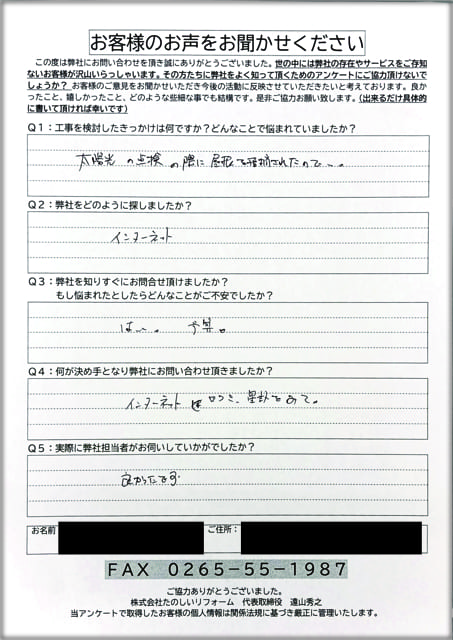 お客様のお声をお聞かせください
この度は弊社にお問い合わせを頂き誠にありがとうございました。世の中には弊社の存在やサービスをご存知
ないお客様が沢山いらっしゃいます。その方たちに弊社をよく知って頂くためのアンケートにご協力頂けないで
しょうか？ お客様のご意見をお聞かせいただき今後の活動に反映させていただきたいと考えております。良かっ
たこと、嬉しかったこと、どのような些細な事でも結構です。是非ご協力お願い致します。(出来るだけ具体的
に書いて頂ければ幸いです)
Q1：工事を検討したきっかけは何ですか？どんなことで悩まれていましたか？
太陽光の点検の際に屋根を指摘されたので…。
Q2：弊社をどのように探しましたか？
インターネット
Q3：弊社を知りすぐにお問合せ頂けましたか？
もし悩まれたとしたらどんなことがご不安でしたか？
はい。 予算。
Q4：何が決め手となり弊社にお問い合わせ頂きましたか？
インターネット 口コミ、星数をみて。
Q5：実際に弊社担当者がお伺いしていかがでしたか？
良かったです
お名前
ご住所：
FAX 0265-55-1987
ご協力ありがとうございました。
株式会社たのしいリフォーム 代表取締役 遠山秀之
当アンケートで取得したお客様の個人情報は関係法規に基づき厳正に管理いたします。